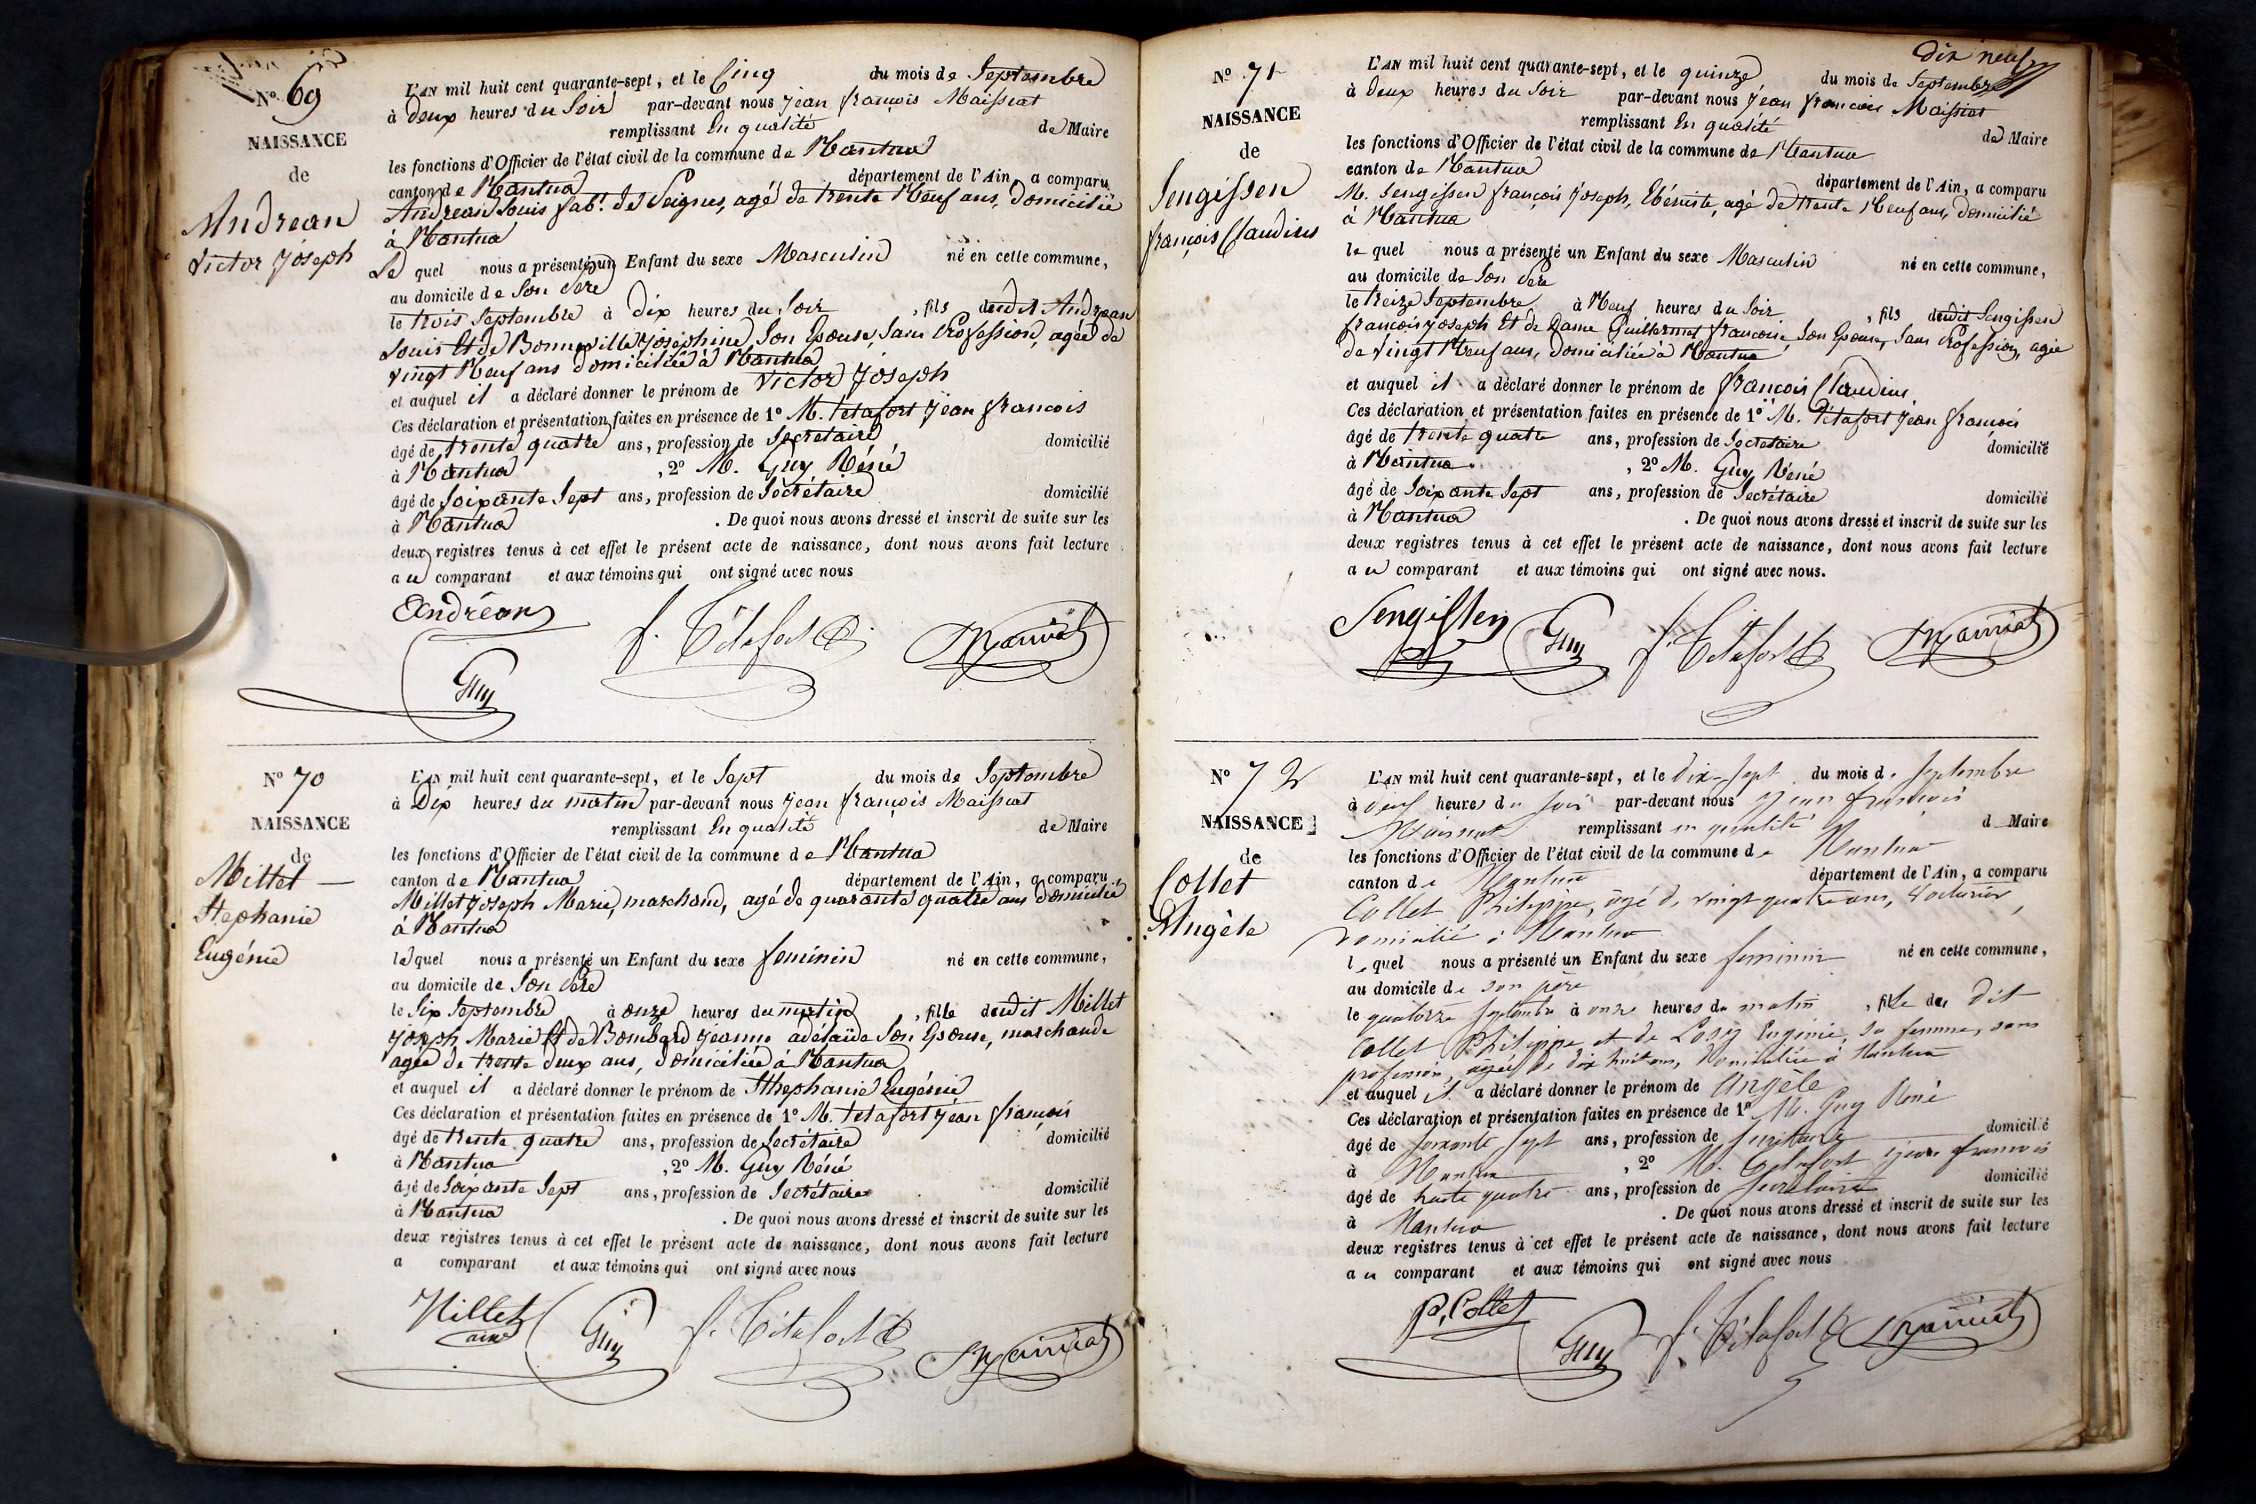 Nº 69
NAISSANCE
de
Andrean
Victor Joseph
L'AN mil huit cent quarante-sept, et le Cinq du mois de Septembre
à deux heures du Soir par-devant nous Jean françois Maissiat
remplissant En qualité de Maire
les fonctions d'Officier de l'état civil de la commune de Nantua
canton de Nantua département de l'Ain, a comparu
Andrean Louis fabt. De Peignes, agé de trente Neuf ans, Domicilié
à Nantua
Le quel nous a présenté un Enfant du sexe Masculin né en cette commune,
au domicile de Son Père
le trois Septembre à Dix heures du Soir, fils dudit Andrean
Louis Et de Bonneville Joséphine Son Epouse, Sans Profession, agée de
vingt Neuf ans domiciliée à Nantua
et auquel il a déclaré donner le prénom de Victor Joseph
Ces déclaration et présentation faites en présence de 1º M. Tétafort Jean françois
âgé de trente quatre ans, profession de Secrétaire domicilié
à Nantua, 2º M. Guy Réné
âgé de Soixante Sept ans, profession de Secrétaire domicilié
à Nantua. De quoi nous avons dressé et inscrit de suite sur les
deux registres tenus à cet effet le présent acte de naissance, dont nous avons fait lecture
au comparant et aux témoins qui ont signé avec nous
Andréan
f. Tétafort
Maissiat
Guy
Nº 70
NAISSANCE
de
Millet
Stephanie
Eugénie
L'AN mil huit cent quarante-sept, et le Sept du mois de Septembre
à Dix heures du matin par-devant nous Jean françois Maissiat
remplissant En qualité de Maire
les fonctions d'Officier de l'état civil de la commune de Nantua
canton de Nantua département de l'Ain, a comparu
Millet Joseph Marie, marchand, agé de quarante quatre ans domicilié
à Nantua
le quel nous a présenté un Enfant du sexe féminin né en cette commune,
au domicile de Son Père
le Six Septembre à onze heures du matin, fille dudit Millet
Joseph Marie Et de Bombard Jeanne adélaïde Son Epouse, marchande
agée de trente deux ans, Domiciliée à Nantua
et auquel il a déclaré donner le prénom de Sthephanie Eugénie
Ces déclaration et présentation faites en présence de 1º M. Tétafort Jean françois
âgé de trente quatre ans, profession de Secrétaire domicilié
à Nantua, 2º M. Guy Réné
âgé de Soixante Sept ans, profession de Secrétaire domicilié
à Nantua. De quoi nous avons dressé et inscrit de suite sur les
deux registres tenus à cet effet le présent acte de naissance, dont nous avons fait lecture
a comparant et aux témoins qui ont signé avec nous
Millet
ainé
Guy
f. Tétafort
Maissiat
Dix neuf
Nº 71
NAISSANCE
de
Sengissen
françois Claudius
L'AN mil huit cent quarante-sept, et le quinze du mois de Septembre
à Deux heures du Soir par-devant nous Jean françois Maissiat
remplissant En qualité de Maire
les fonctions d'Officier de l'état civil de la commune de Nantua
canton de Nantua département de l'Ain, a comparu
M. Sengissen françois Joseph, Ebéniste, agé de trente Neuf ans, domicilié
à Nantua
le quel nous a présenté un Enfant du sexe Masculin né en cette commune,
au domicile de Son Père
le treize Septembre à Neuf heures du Soir, fils dudit Sengissen
françois Joseph Et de Dame Guillermet françoise, Son Epouse, Sans Profession, agée
de vingt Neuf ans, Domiciliée à Nantua
et auquel il a déclaré donner le prénom de françois Claudius.
Ces déclaration et présentation faites en présence de 1º M. Tétafort Jean françois
âgé de trente quatre ans, profession de Secretaire domicilié
à Nantua, 2º M. Guy Réné
âgé de Soixante Sept ans, profession de Secrétaire domicilié
à Nantua. De quoi nous avons dressé et inscrit de suite sur les
deux registres tenus à cet effet le présent acte de naissance, dont nous avons fait lecture
au comparant et aux témoins qui ont signé avec nous.
Sengissen
Guy
f. Tétafort
Maissiat
Nº 72
NAISSANCE
de
Collet
Angèle
L'AN mil huit cent quarante-sept, et le dix-sept du mois de septembre
à heures du soir par-devant nous Jean françois
Maissiat remplissant en qualité d Maire
les fonctions d'Officier de l'état civil de la commune de Nantua
canton de Nantua département de l'Ain, a comparu
Collet Philippe, âgé de vingt quatre ans, Voiturier,
domicilié à Nantua
le quel nous a présenté un Enfant du sexe feminin né en cette commune,
au domicile de son père
le quatorze septembre à onze heures du matin, fille du dit
Collet Philippe et de Eugénie, sa femme, sans
profession, agée de dix huit ans, domiciliée à Nantua
et auquel il a déclaré donner le prénom de Angèle
Ces déclaration et présentation faites en présence de 1º M. Guy Réné
âgé de soixante sept ans, profession de secrétaire domicilié
à Nantua, 2º M. Tétafort jean françois
âgé de trente quatre ans, profession de secrétaire domicilié
à Nantua. De quoi nous avons dressé et inscrit de suite sur les
deux registres tenus à cet effet le présent acte de naissance, dont nous avons fait lecture
au comparant et aux témoins qui ont signé avec nous
P. Collet
Guy
f. Tétafort
Maissiat